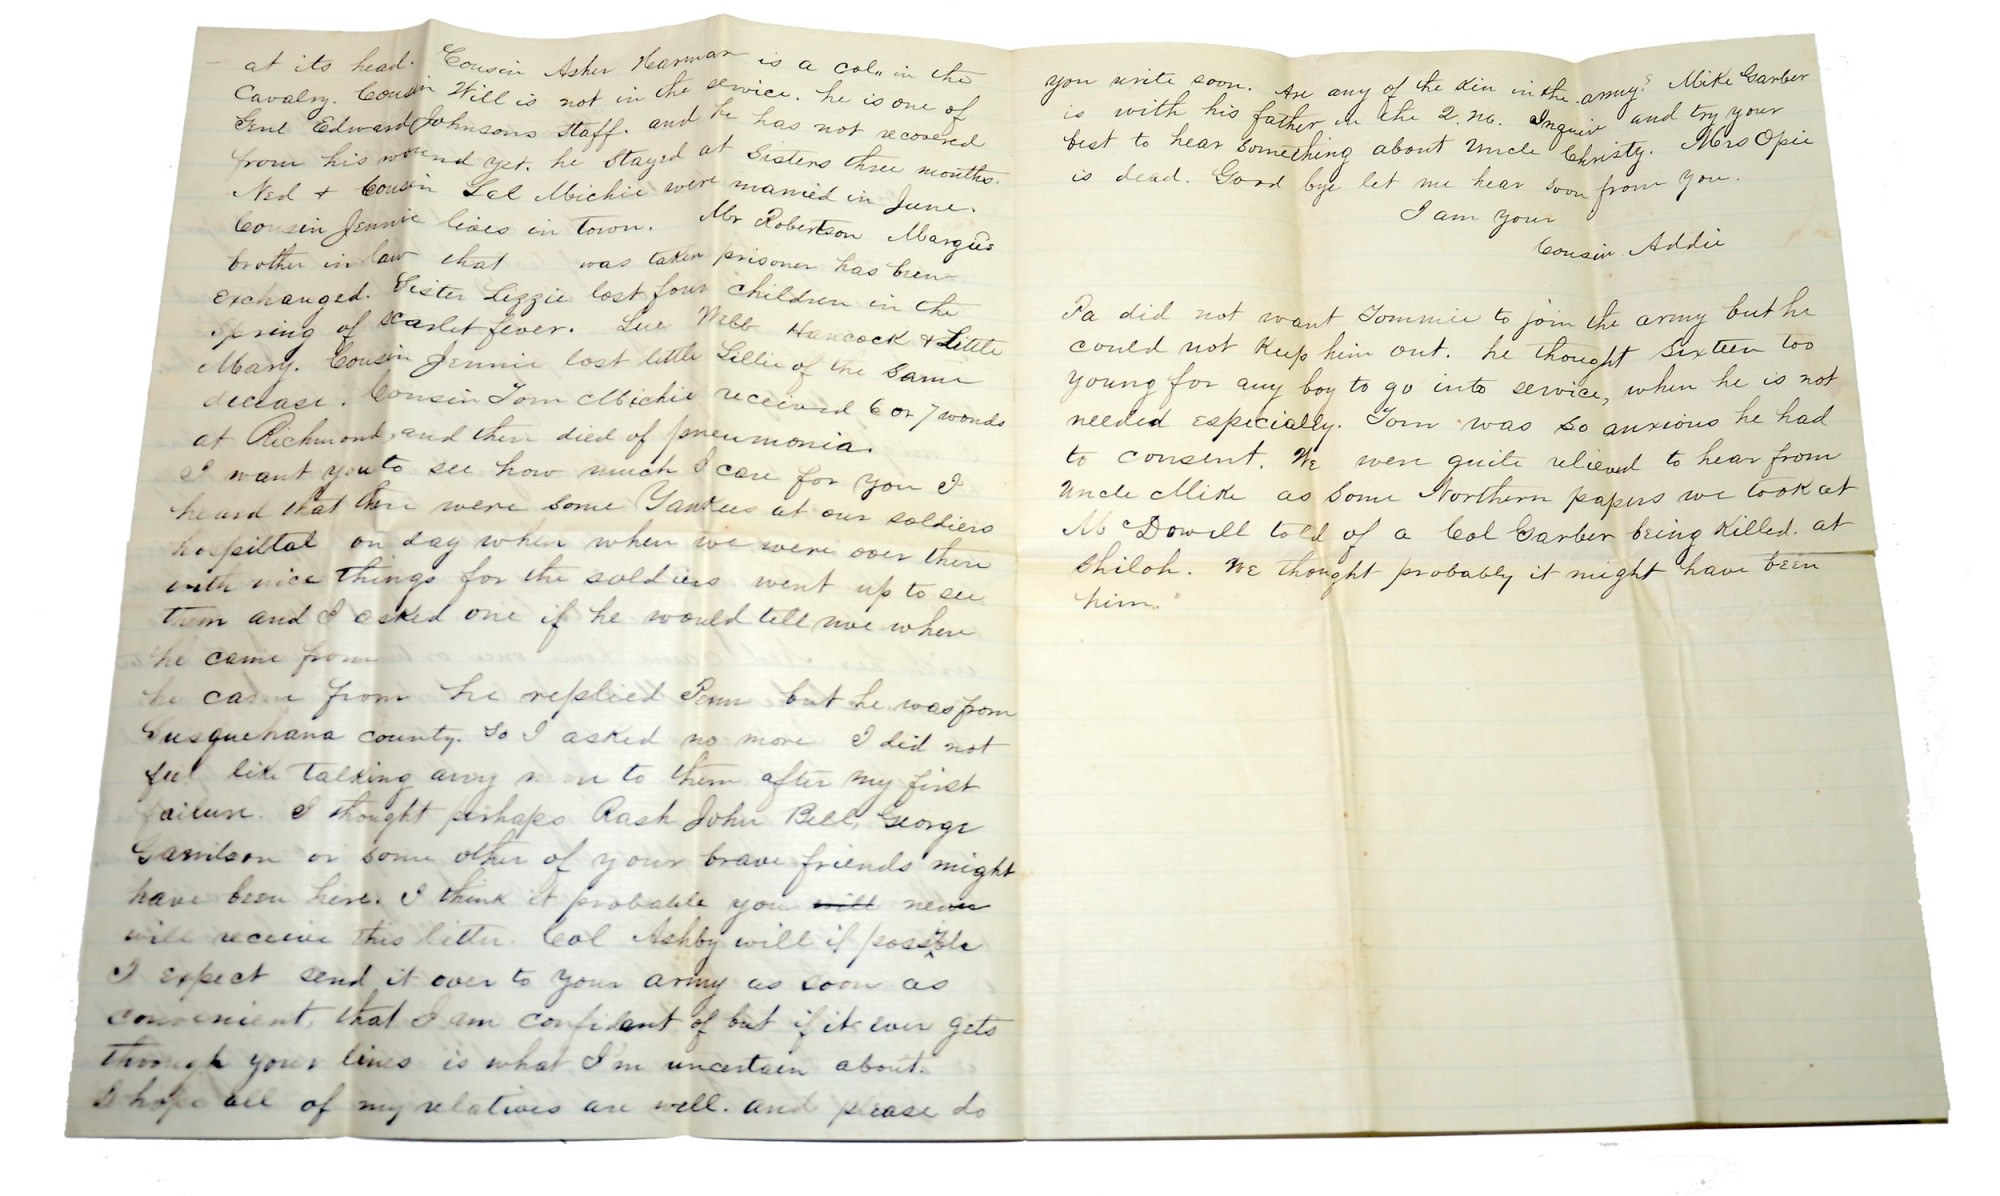 at its head. Cousin Asher Harman is a col,, in the
Cavalry. Cousin Will is not in the service. he is one of
Genl Edward Johnsons staff. and he has not recovered
from his wound yet. he stayed at Sisters three months.
Ned & Cousin Sal Michie were married in June.
Cousin Jennie lives in town. Mr Robertson Margies
brother in law that was taken prisoner has been
exchanged. Sister Lizzie lost four children in the
spring of scarlet fever. Lue Webb Hancock & Little
Mary. Cousin Jennie lost little Lillie of the same
decease. Cousin Tom Michie received 6 or 7 wonds
at Richmond, and then died of pneumonia.
I want you to see how much I care for you I
heard that there were some Yankees at our soldiers
hospiltal on day when when we were over there
with nice things for the soldiers went up to see
them and I asked one if he would tell me where
he came from
he came from he replied Penn but he was from
Susquehana county. So I asked no more I did not
feel like talking any more to them after my first
failure. I thought perhaps Rash John Bell, George
Garritson or some other of your brave friends might
have been here. I think it probable you will never
will receive this letter. Col Ashby will if possible
I expect send it over to your army as soon as
convenient, that I am confident of but if it ever gets
through your lines is what I'm uncertain about.
I hope all of my relatives are well. and please do
you write soon. Are any of the kin in the army? Mike Garber
is with his father in the 2. no. Inquire and try your
best to hear something about Uncle Christy. Mrs Opie
is dead. Good bye let me hear soon from you.
I am your
Cousin Addie
Pa did not want Tommie to join the army but he
could not keep him out. he thought sixteen too
young for any boy to go into service, when he is not
needed especially. Tom was so anxious he had
to consent. We were quite relieved to hear from
Uncle Mike as some Northern papers we took at
McDowell told of a Col Garber being killed. at
Shiloh. We thought probably it might have been
him.